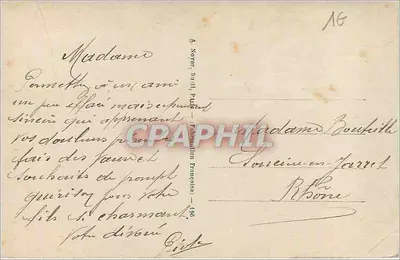 1G
Madame
Permettez à un ami
un peu effacé mais
sincère qui apprenant
vos douleurs
fais des vœux et
souhaits de prompt
guérison pour votre
fils si charmant.
Votre dévoué
A. Noyer, Paris — Fabrication Française) — 166
CPARPHIL
Madame
en-Jarret
Rhône